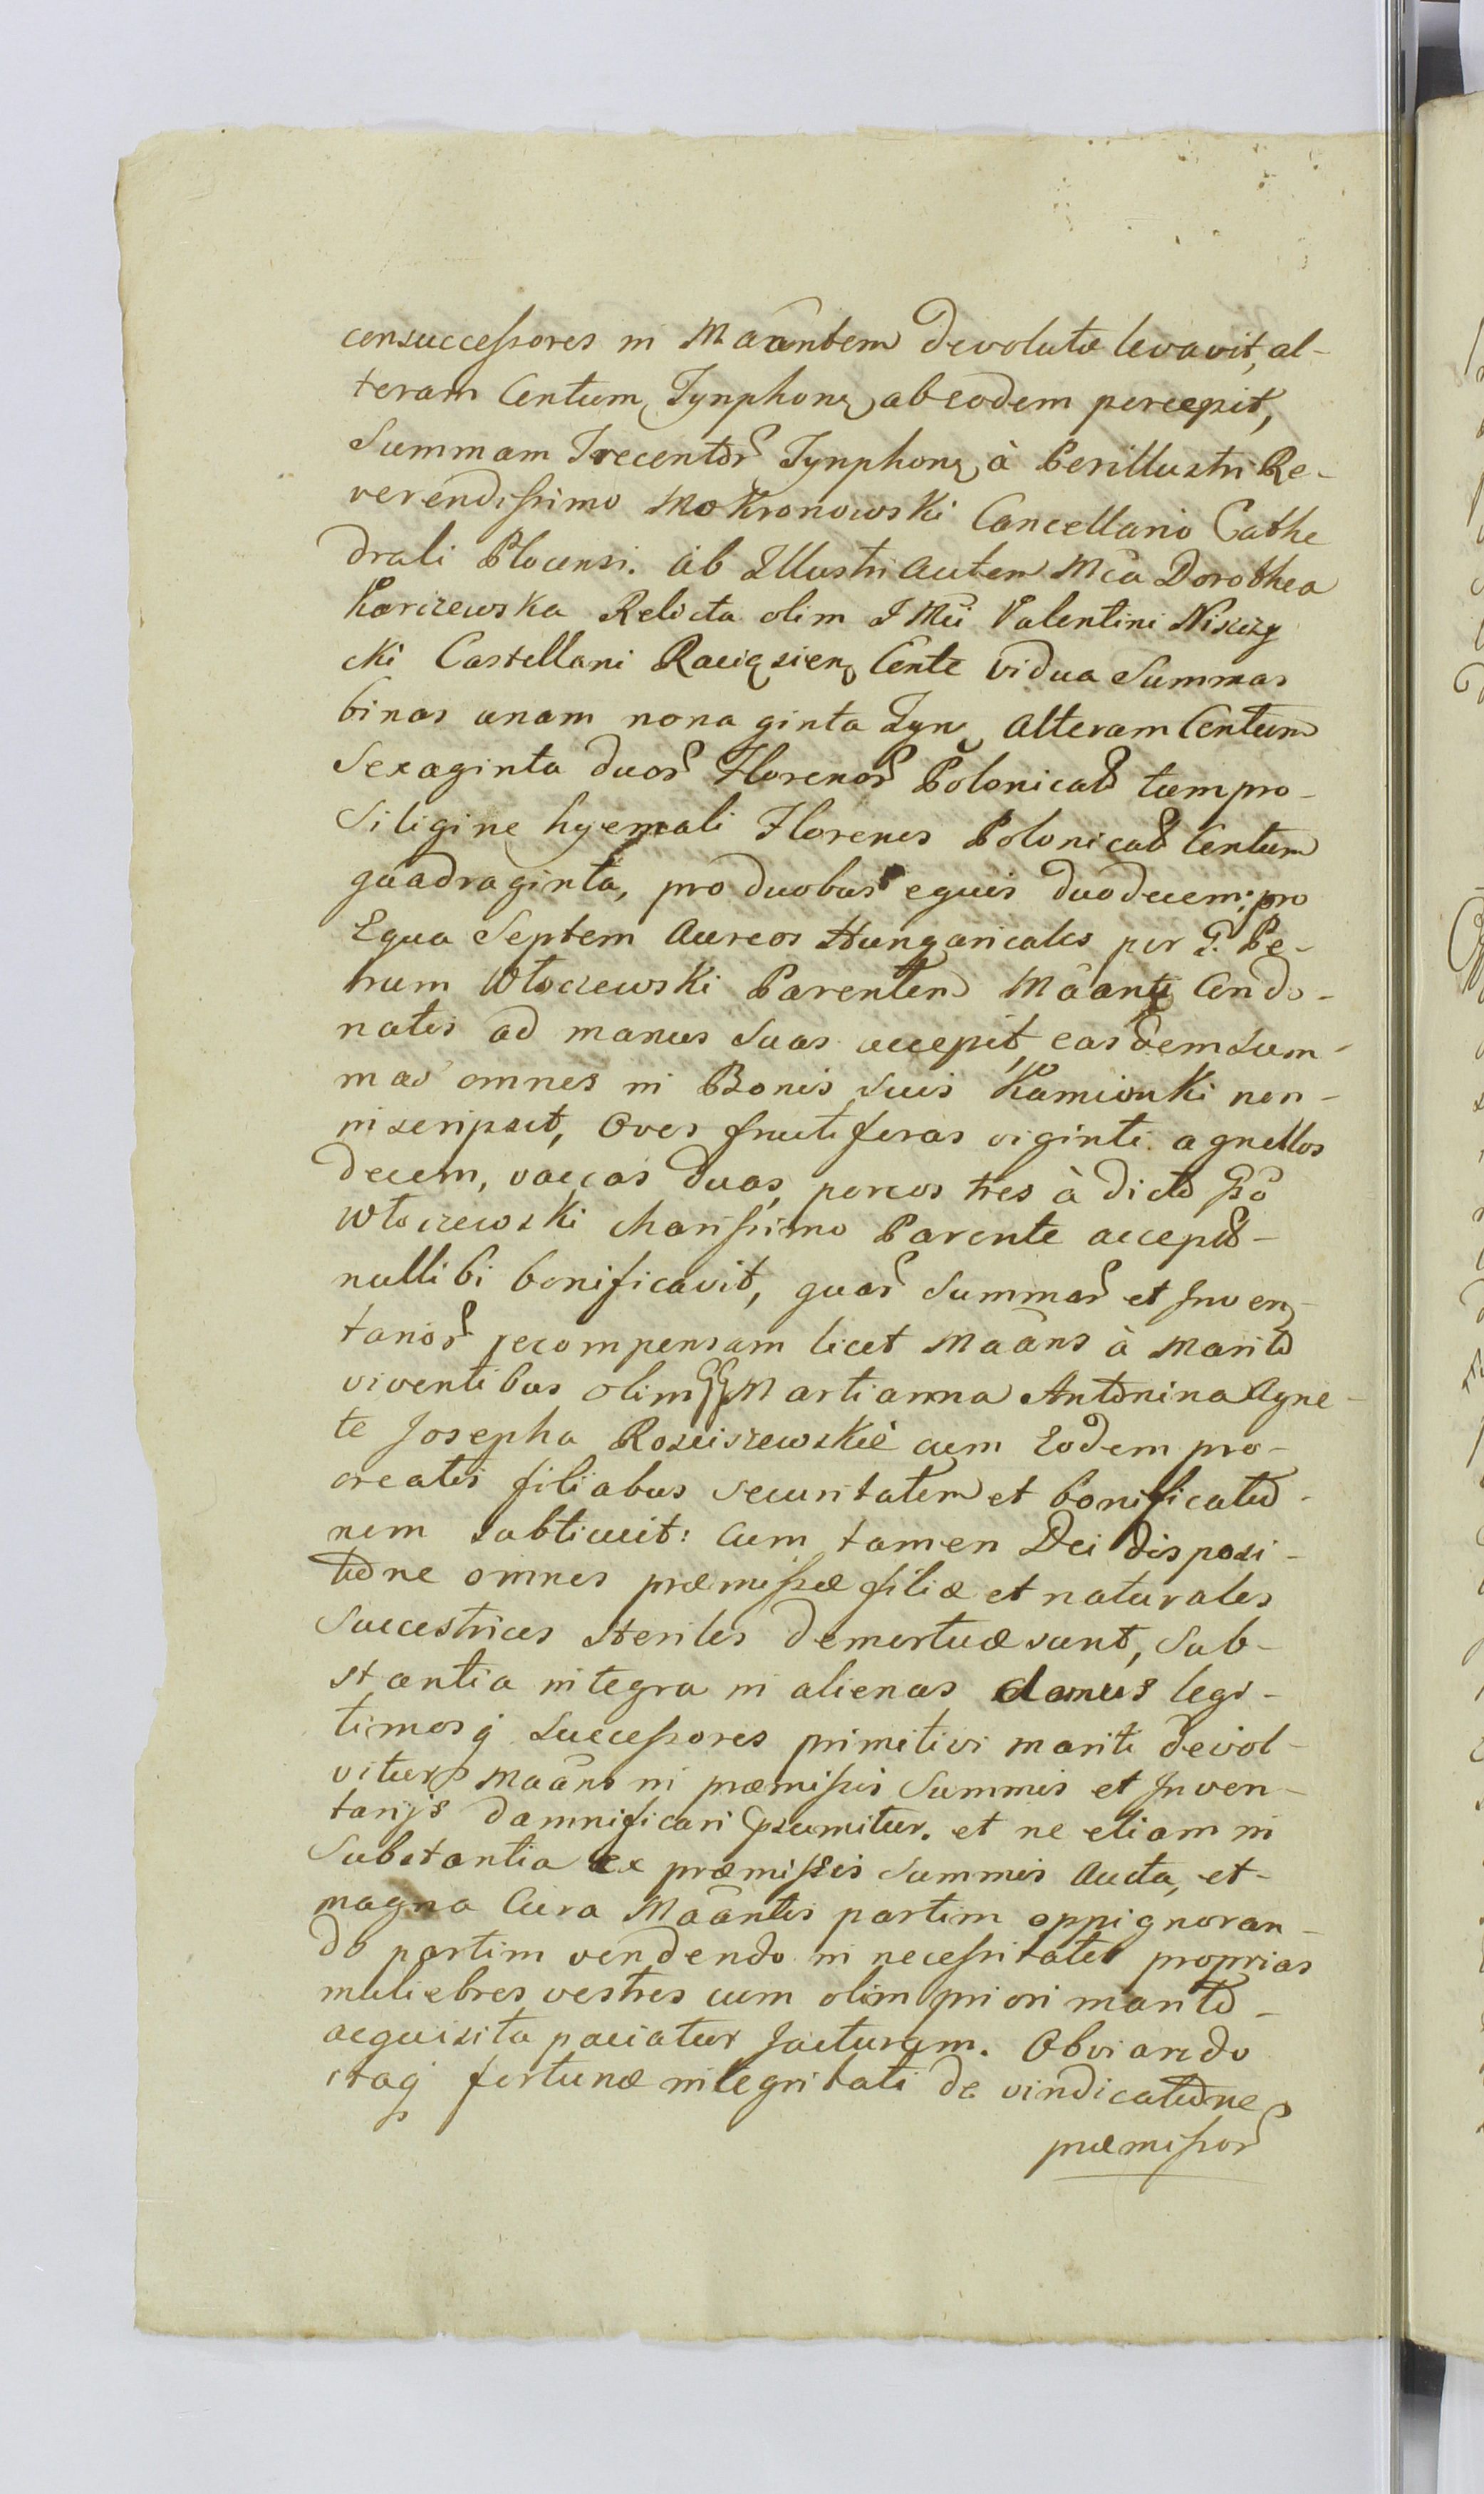 consuccessores in Maântem devoluto levavit, al-
teram Centum Tynphonꝫ ab eodem percepit,
Summam Trecentor Tynphonꝫ à Perillustri Re-
verendissimo Mokronowski Cancellario Cathe
drali Plocensi. ab Illustri autem Mca Dorothea
Karczewska Relicta olim I Mci Valentini Niszczy
cki Castellani Raciązienꝫ Cente vidua Summas
binas unam nona ginta Tynꝫ alteram Centum
Sexaginta duor Florenor Polonical tum pro-
Siligine hyemali Florenos Polonical Centum
quadraginta, pro duobus equis duodecem, pro
Equa Septem Aureos Hungaricales per G. Pe-
trum Włoczewski Parentem Maânti Condo-
natos ad manus suas accepit, easdem Sum-
mas omnes in Bonis suis Kamionki non-
inscripsit, Oves fructiferas viginti agnellos
decem, vaccas duas, porcos tres à dicto Gso
Włoczewski charissimo Parente accepit-
nullibi bonificavit, quar Summar et Inven-
tarior recompensam licet Maâns à Marito
viventibus olim GG Martianna Antonina Agne-
te Josepha Rosciszewskie cum Eodem pro-
creatis filiabus securitatem et bonificatio-
nem subticuit: Cum tamen Dei disposi-
tione omnes præmissæ filiæ et naturales
Succestrices steriles demortuæ sunt, Sub-
stantia integra in alienas domus legi-
timosq Successores primitivi mariti devol-
vitur Maâns in præmissis Summis et Inven-
tarijs damnificari psumitur. et ne etiam in
Substantia ex præmissis Summis Aucta, et-
magna Cura Maântis partim oppignoran-
do partim vendendo in necessitates proprias
muliebres vestes cum olim priori marito-
acquisita paciatur Jacturam. Obviando
itaq fortunæ integritati de vindicatione
præmissor